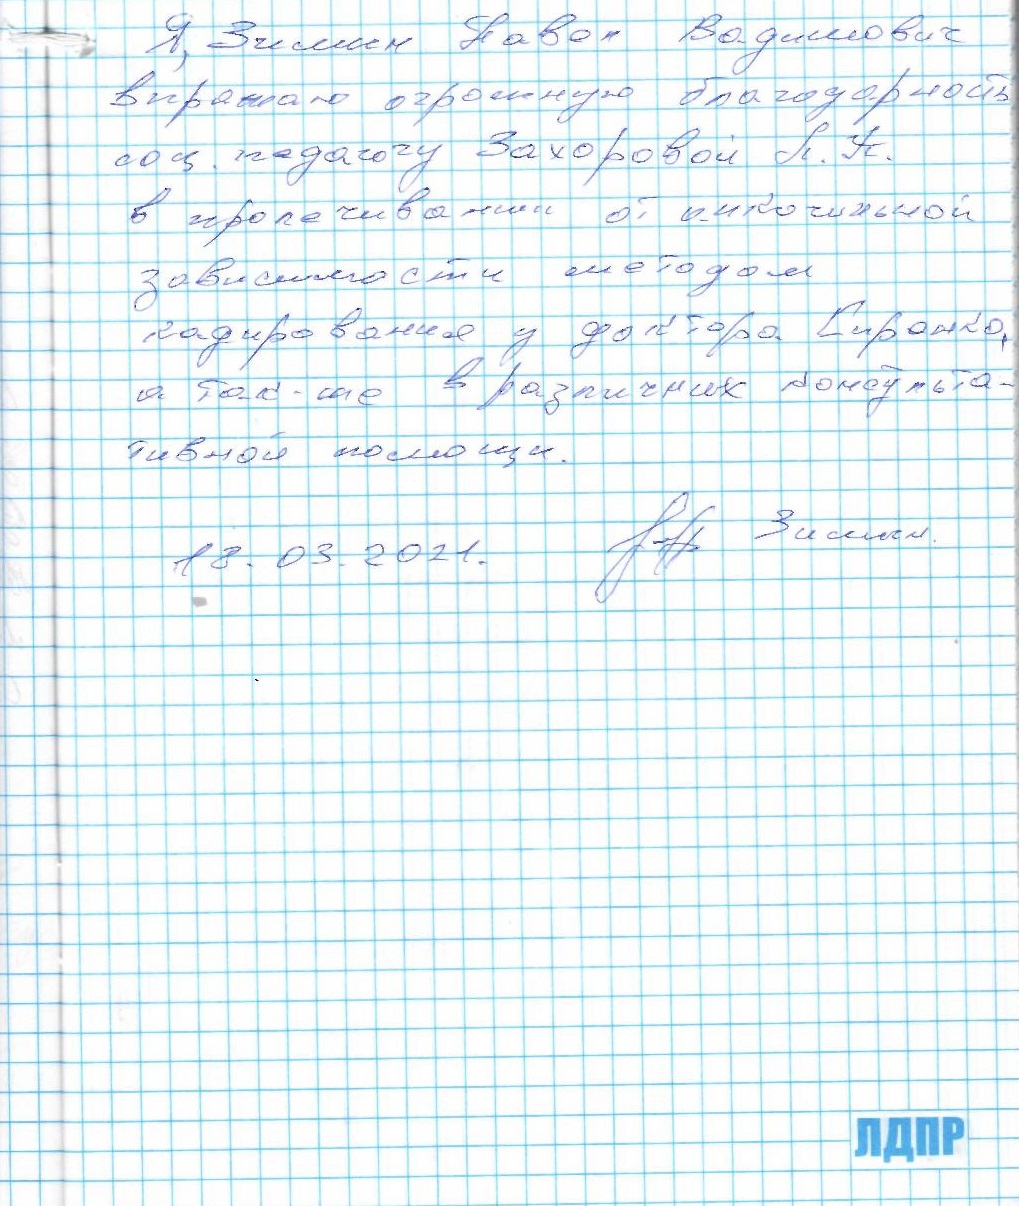 Я, Зимин Павел Вадимович
выражаю огромную благодарность
соц. педагогу Захоровой Л. К.
в пролечивании от алкогольной
зависимости методом
кадирования у доктора Сиротко,
а так-же в различных консульта-
тивной помощи.
18.03.2021. Зимин.
ЛДПР